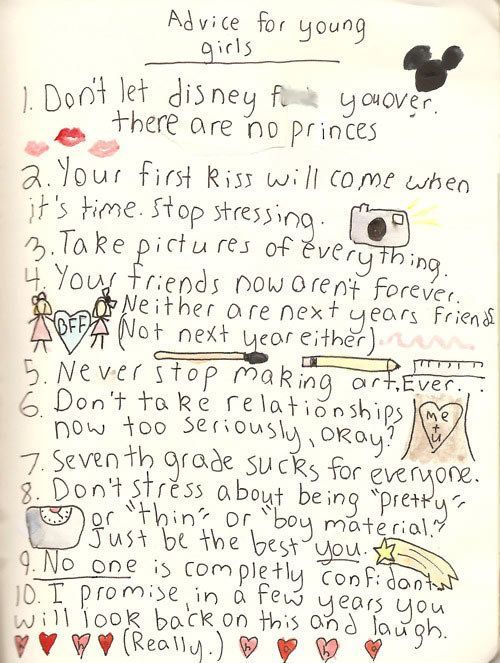 Advice for young
girls
1. Don't let disney f you over.
there are no princes
2. Your first kiss will come when
it's time. Stop stressing.
3. Take pictures of everything.
4. Your friends now aren't forever.
Neither are next years friends
(Not next year either).
BFF
5. Never stop making art. Ever.
6. Don't take relationships
now too seriously, okay?
me
+
u
7. Seventh grade sucks for everyone.
8. Don't stress about being "pretty"
or "thin" or "boy material."
Just be the best you.
9. No one is completly confidant.
10. I promise, in a few years you
will look back on this and laugh.
(Really.)